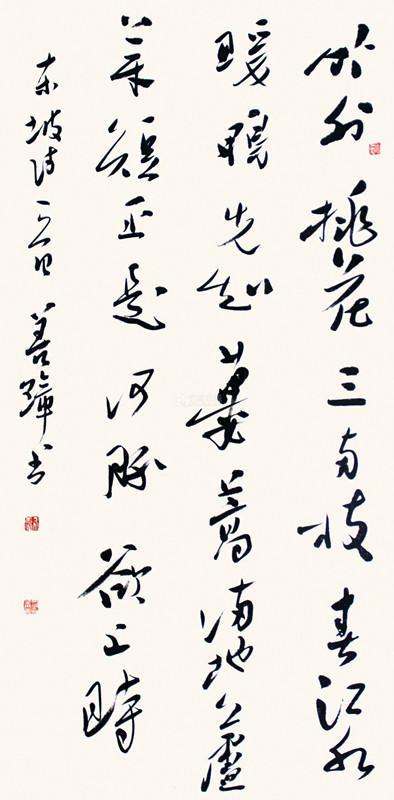 竹外桃花三两枝春江水
暖鸭先知蒌蒿满地蘆
芽短正是河豚欲上時
东坡诗一首 善书